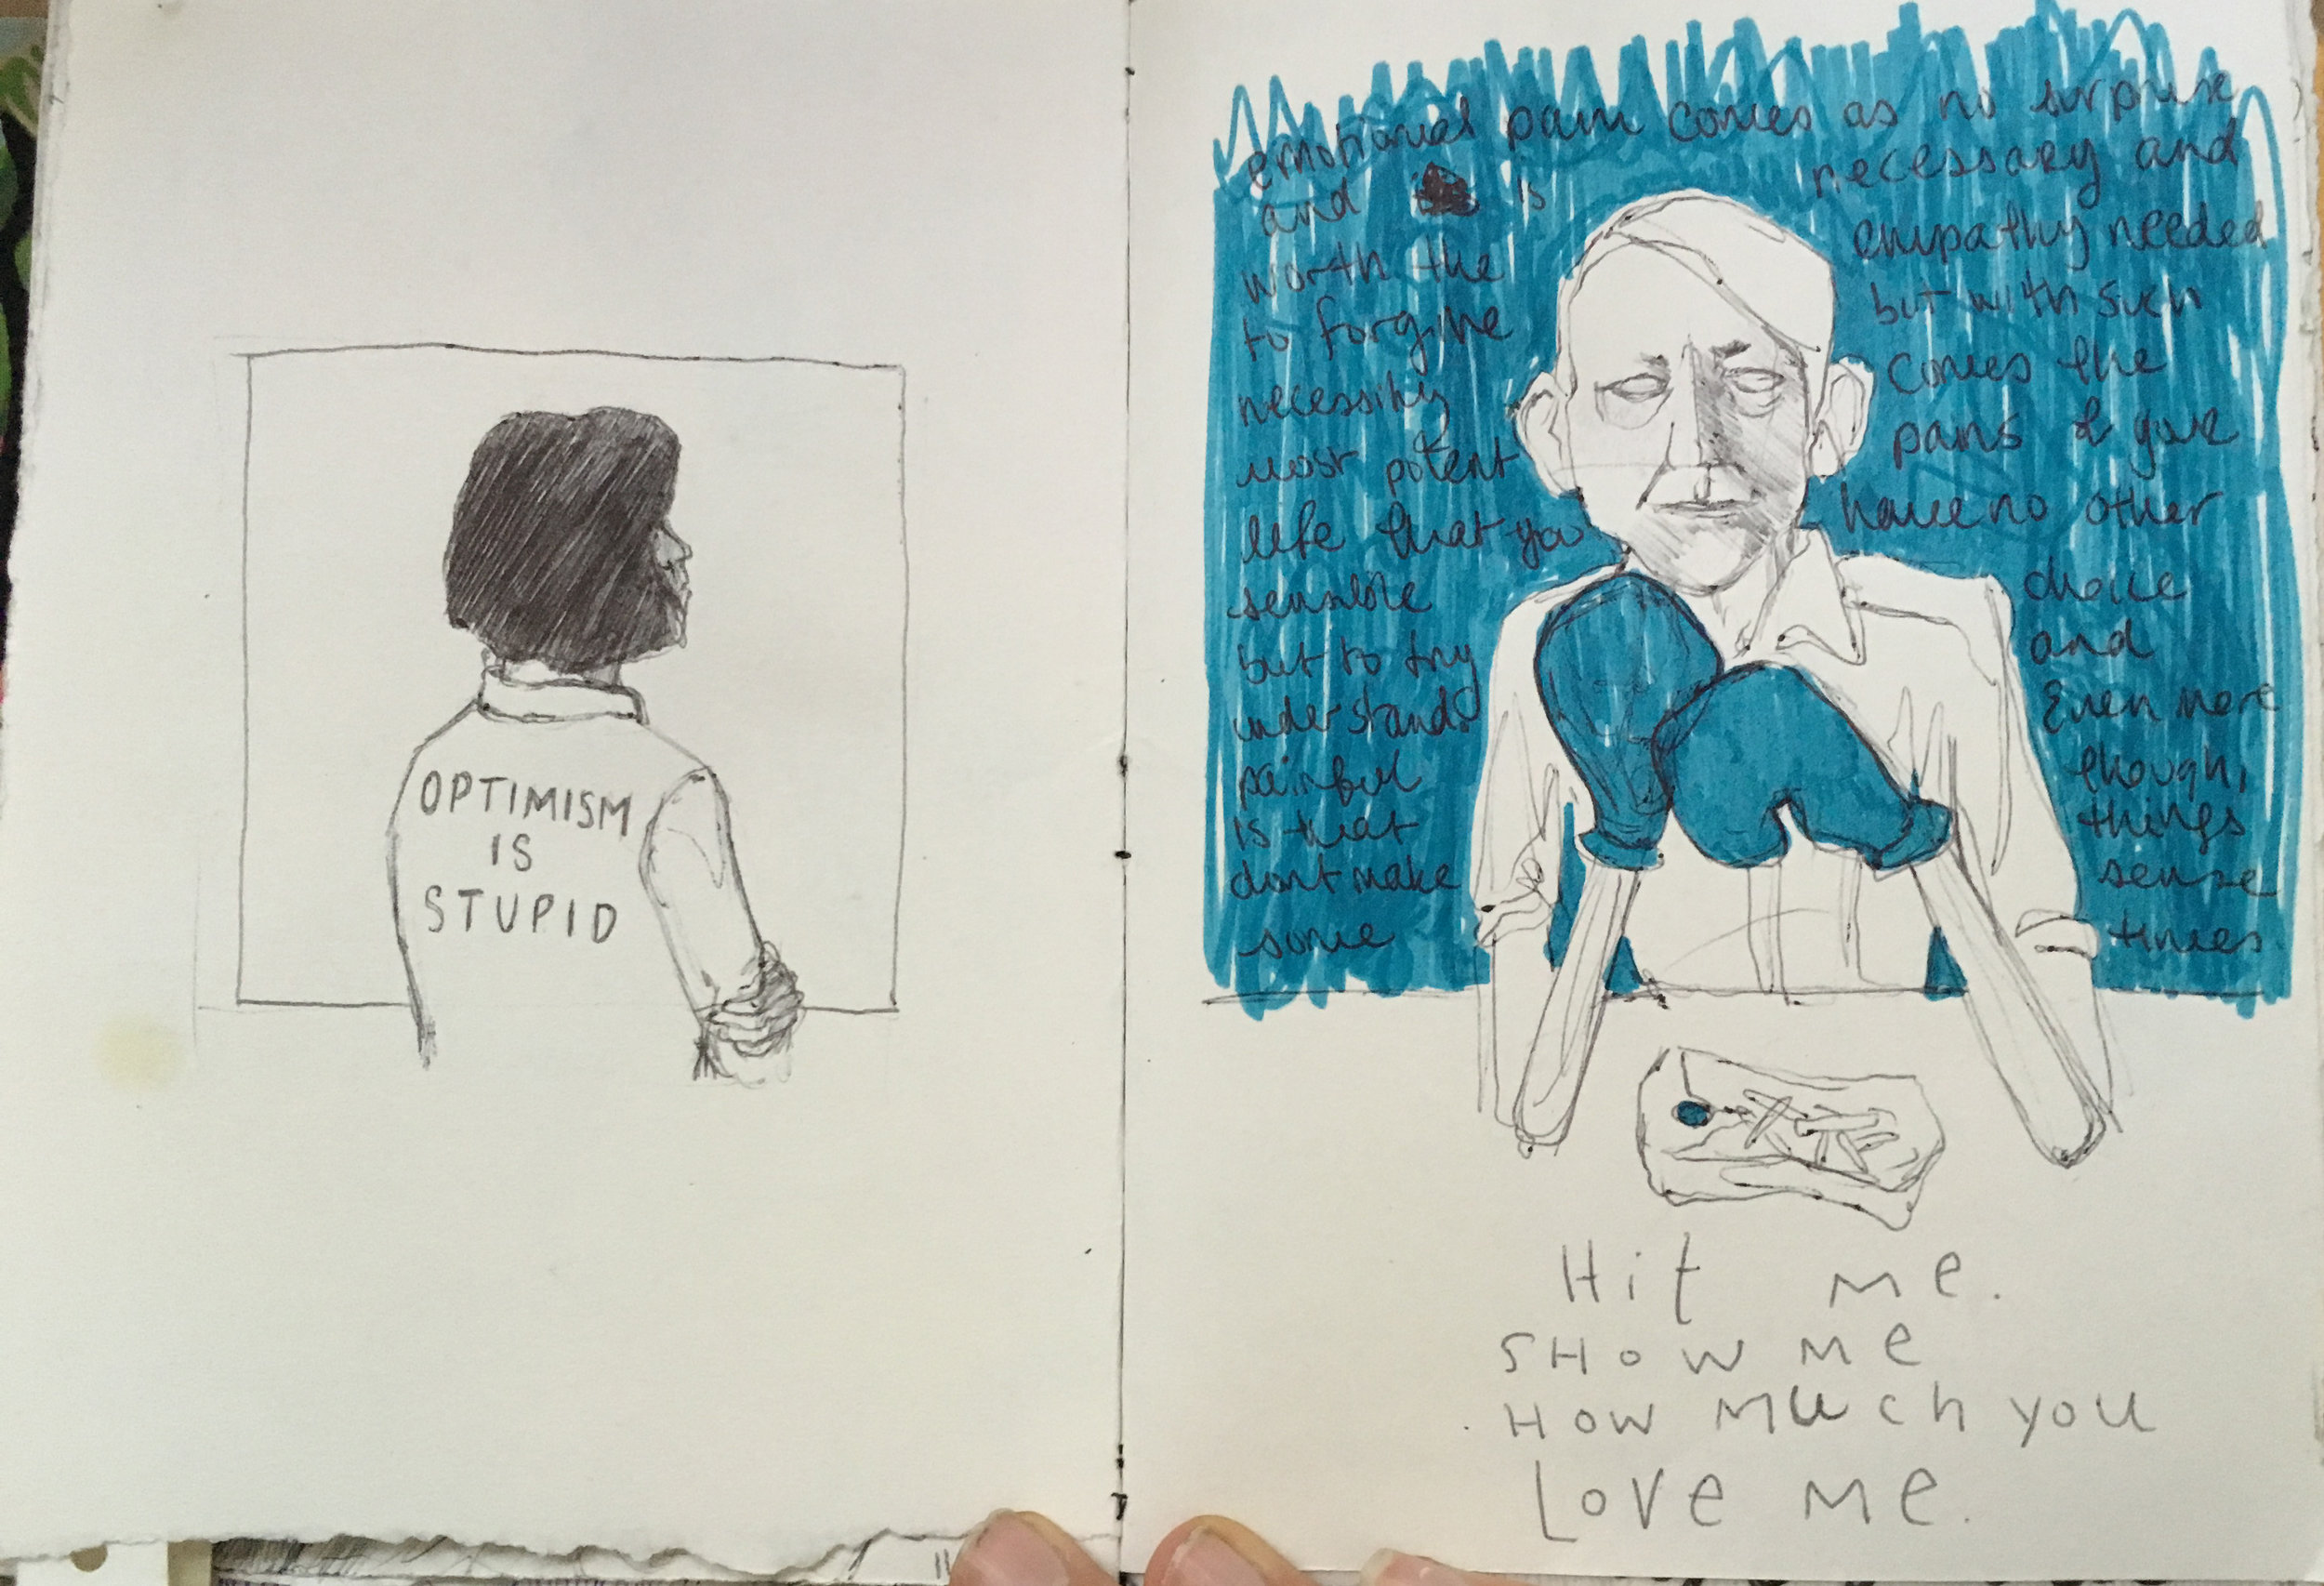 OPTIMISM
IS
STUPID
emotional pain comes as no surprise
and is necessary and
worth the empathy needed
to forgive but with such
necessity comes the
most potent pains & your
life that you have no other
sensible choice
but to try and
understand. Even more
painful though,
is that things
dont make sense
some times
Hit me.
SHOW ME
HOW MUCH YOU
LOVE ME.